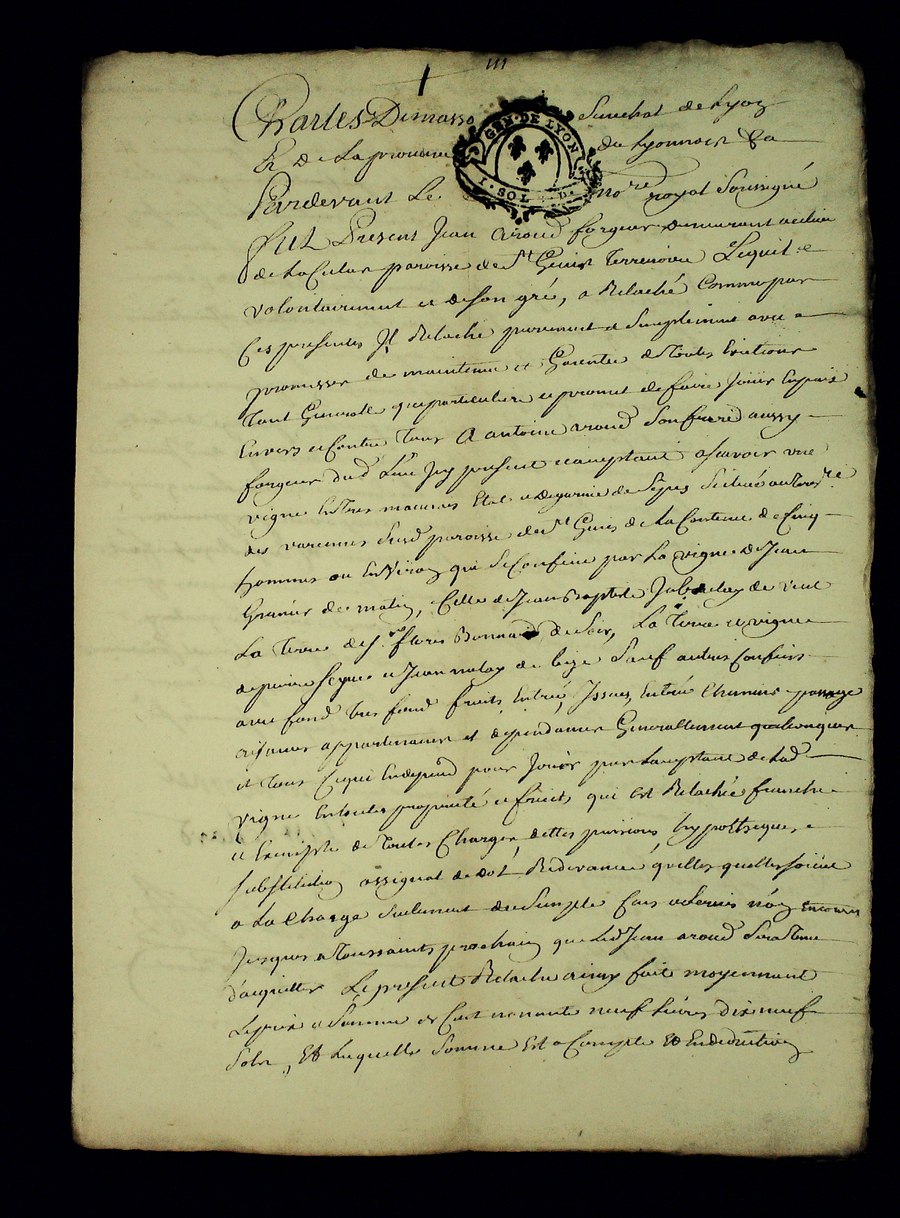 III
Charles Demasso Senechal de Lyon
Et de La province du Lyonnois &a
GEN · DE LYON
I · SOL · D ·
Pardevant Le no.re royal Soussigné
fut Present Jean aroud forgeur Demeurant au lieu
de La Culas paroisse de S.t Genist Terrenoire Lequel de
volontairement et de Son gré, a Relaché Comme par
Ces presentes Il Relache purement et Simplement avec
promesse de maintenue et Garentie de Toutes Evictions
Tant Generalle que particuliere et promet de faire Jouir En paix
Envers et Contre Tous A antoine aroud Son frere aussy
forgeur dud. Lieu Icy present et acceptant asavoir une
vigne En Ses mesures Etat et Degarnie de Seps Scituée au Terr.re
des varennes Susd. paroisse de S.t Genis de La Contenue de Cinq
hommes ou Environ qui Se Confine par La vigne de Jean
Granier de matin, Celle de Jean Baptiste Jaboulay de vent
La Terre de S.r flores Bonnard de Soir, La Terre et vigne
de pierre Seyve et Jean nalay de bize Sauf autres Confins
avec fond Tres fond fruits, Entrée, Issues, Entrée Chemins passage
aisances appartenances et dependances Generallement quelconques
et Tous Ce qui En depend pour Jouir par L'acceptant de Lad.
vigne En toutes propriété et fruits, qui Est Relachée franche
et Exempte de Toutes Charges, dettes pensions, hypotheques,
substitution assignat de dot, Redevance quelles quelles soient
a La Charge Seulement du Simple Cens et Servis non Encourus
Jusques a Toussaints prochain que Led. Jean aroud Sera Tenu
d'acquitter Le present Relache ainsy fait moyennant
Le prix et Somme de Cent nonante neuf Livres dix neuf
Sols, Et Laquelle Somme Est a Compte Et En deduction